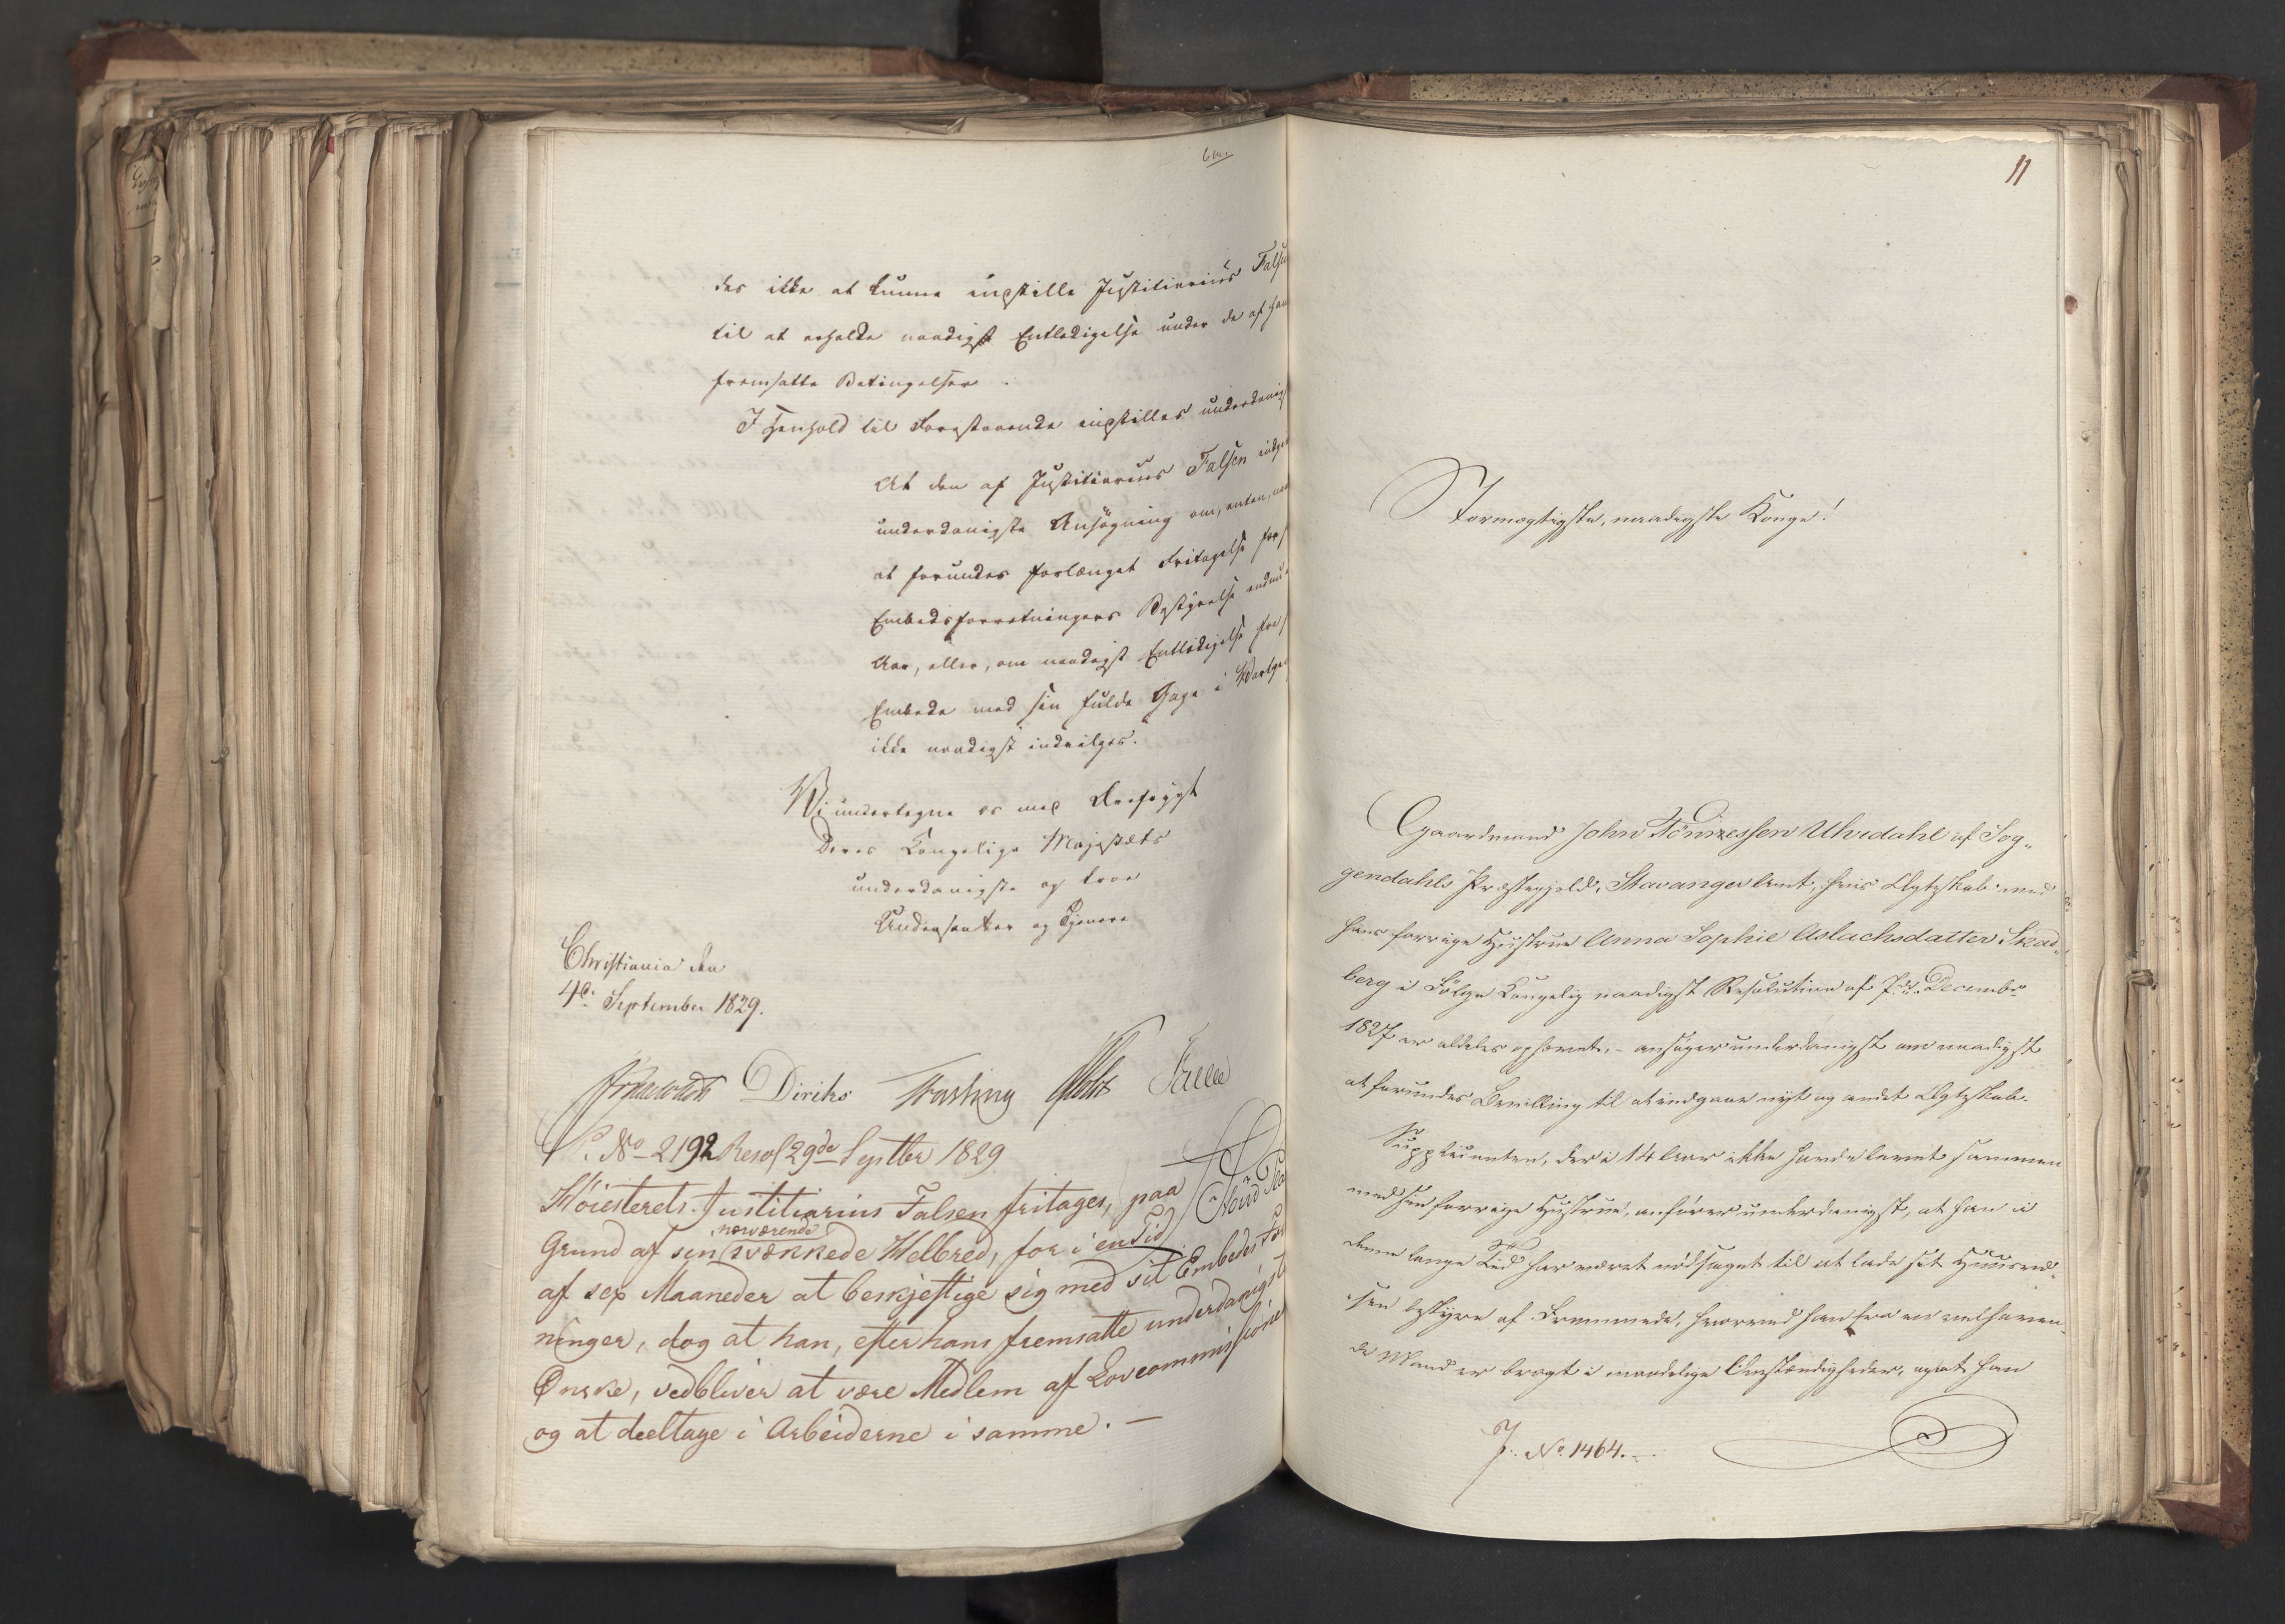 des ikke at kunne indstille Justitiarius Falsen
til at erholde naadigst Entledigelse under de af ham
fremsatte Betingelser.
I Henhold til Foranstaaende indstilles underdanigst
At den af Justitiarius Falsen indgivne
underdanigste Ansøgning om, enten, naadigst
at forundes forlænget Fritagelse for
Embedsforretningers Bestyrelse endnu
Aar, eller, om naadigst Entledigelse fra
Embede med sin fulde Gage i Vartpenge
ikke naadigst indvilges.
Vi undertegne os med Ærefrygt
Deres Kongelige Majestæts
underdanigste og troe
Undersaatter og Tjenere
Christiania den
4de September 1829.
Diriks Fasting
S. No 2192 Resol 29de Septbr 1829
Høiesterets-Justitiarius Falsen fritages, paa
Grund af sin nærværende svækkede Helbred, for i en Tid
af sex Maaneder at beskjeftige sig med sit Embedes For
ninger, dog at han, efter hans fremsatte underdanigst
Ønske, vedbliver at være Medlem af Lovcommissionen
og at deeltage i Arbeiderne i samme. —
11
Stormægtigste, naadigste Konge!
Gaardmand John Tönnessen Uhvedahl af Sog„
gendahls Præstegjeld, Stavanger Amt, hvis Ægteskab med
hans forrige Hustrue Anna Sophie Aslachsdatter Skad„
berg i Følge Kongelig naadigst Resolution af 7de Decembr
1827 er aldeles ophævet, - ansøger underdanigst om naadigst
at forundes Bevilling til at indgaae nyt og andet Ægteskab.
Supplicanten, der i 14 Aar ikke havde levet sammen
med sin forrige Hustrue, anfører underdanigst, at han i
denne lange Tid har været nødsaget til at lade sit Huusvæ„
sen bestyre af Fremmede, hvorved han fra en velhaven„
de Mand er bragt i maadelige Omstændigheder, og at han
J. No 1464.